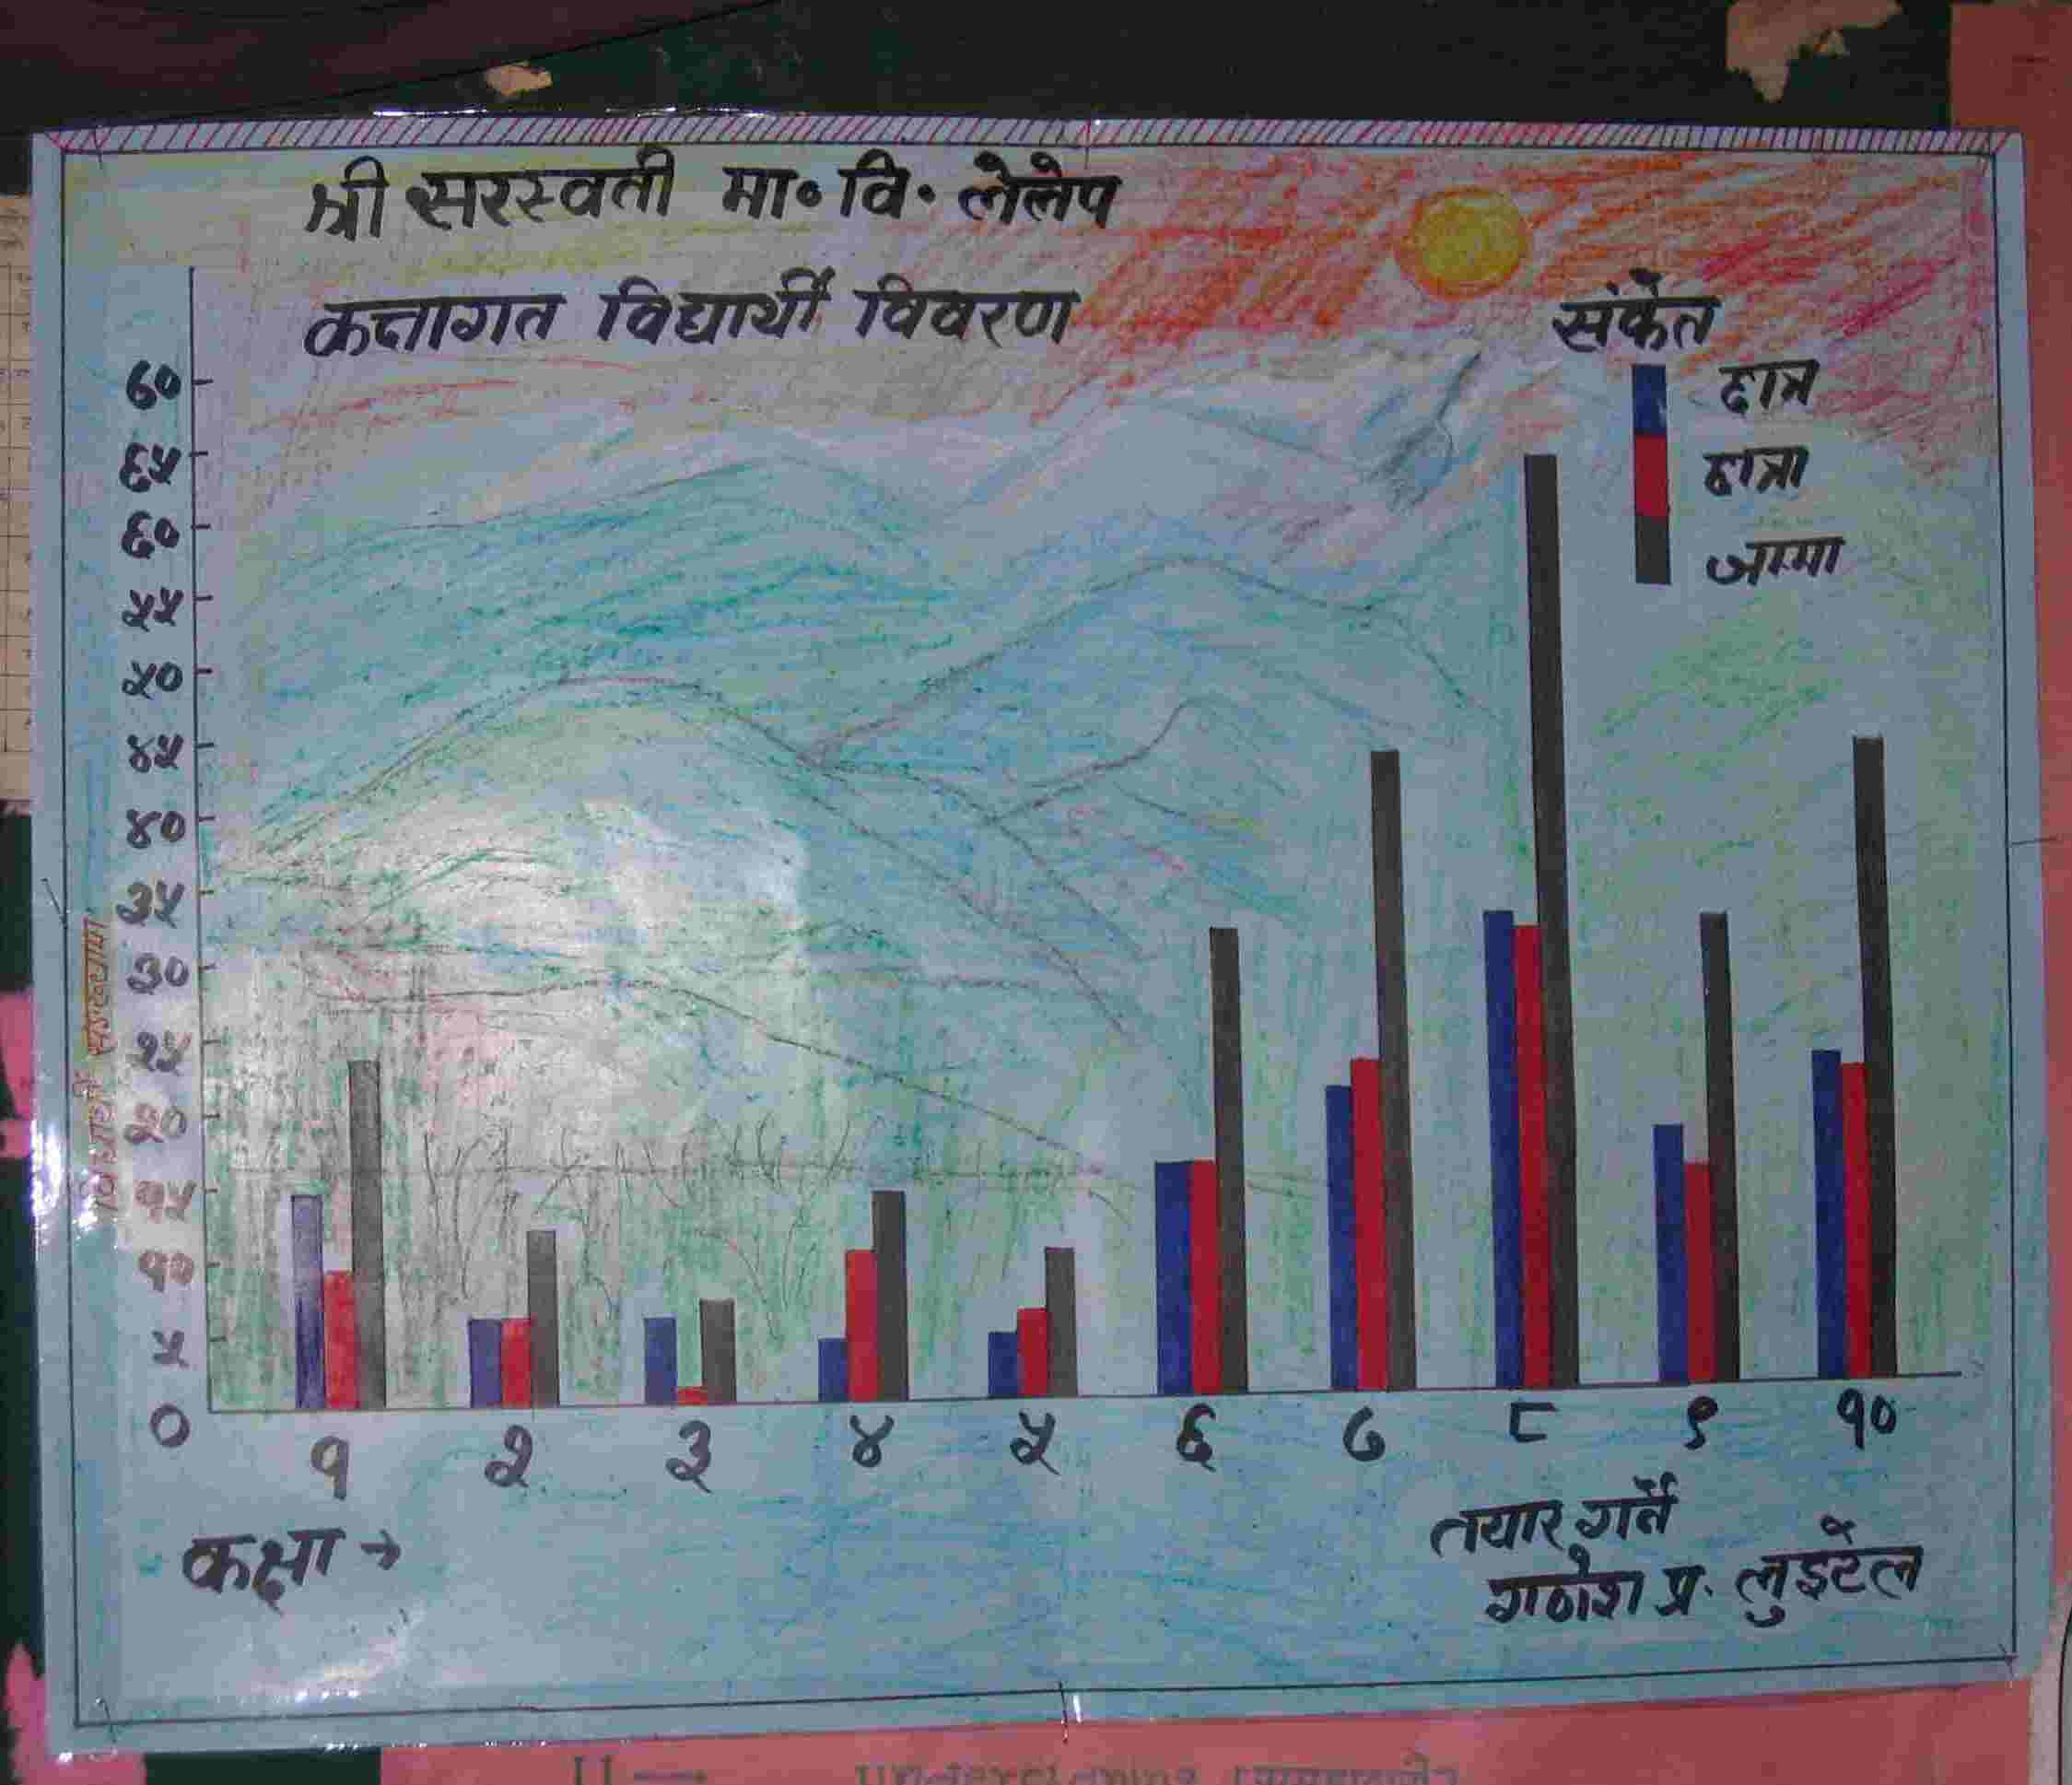 श्री सरस्वती मा॰ वि॰ लेलेप
कक्षागत विद्यार्थी विवरण
संकेत
छात्र
छात्रा
जम्मा
७०
६५
६०
५५
५०
४५
४०
३५
३०
२५
२०
१५
१०
५
०
१ २ ३ ४ ५ ६ ७ ८ ९ १०
कक्षा →
तयार गर्ने
गणेश प्र. लुइटेल